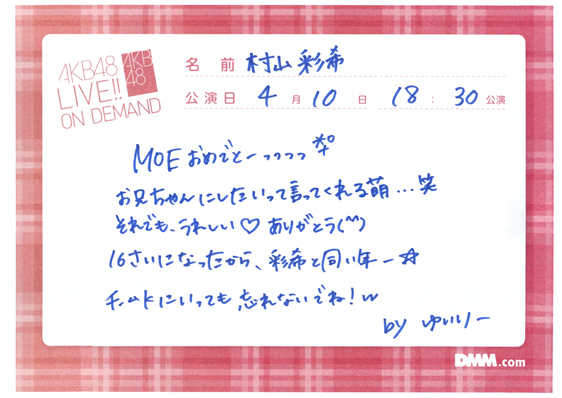 AKB48
LIVE!!
ON DEMAND
AKB
48
名前 村山彩希
公演日 4月10日 18:30公演
MOEおめでとーっっっっ
お兄ちゃんにしたいって言ってくれる萌…笑
それでも、うれしい♡ ありがとう(^^)
16さいになったから、彩希と同い年ー☆
チームKにいっても忘れないでね!w
by ゆいりー
DMM.com